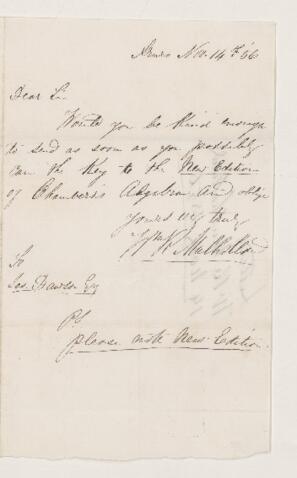 Nov. 14th 56
Dear Sir
Would you be kind enough
to send as soon as you possibly
can the Key to the New Edition
of Chambers's Algebra and oblige
yours very truly
K. Mulholland
To
Jos. Dawson Esq
PS
please note New Edition.